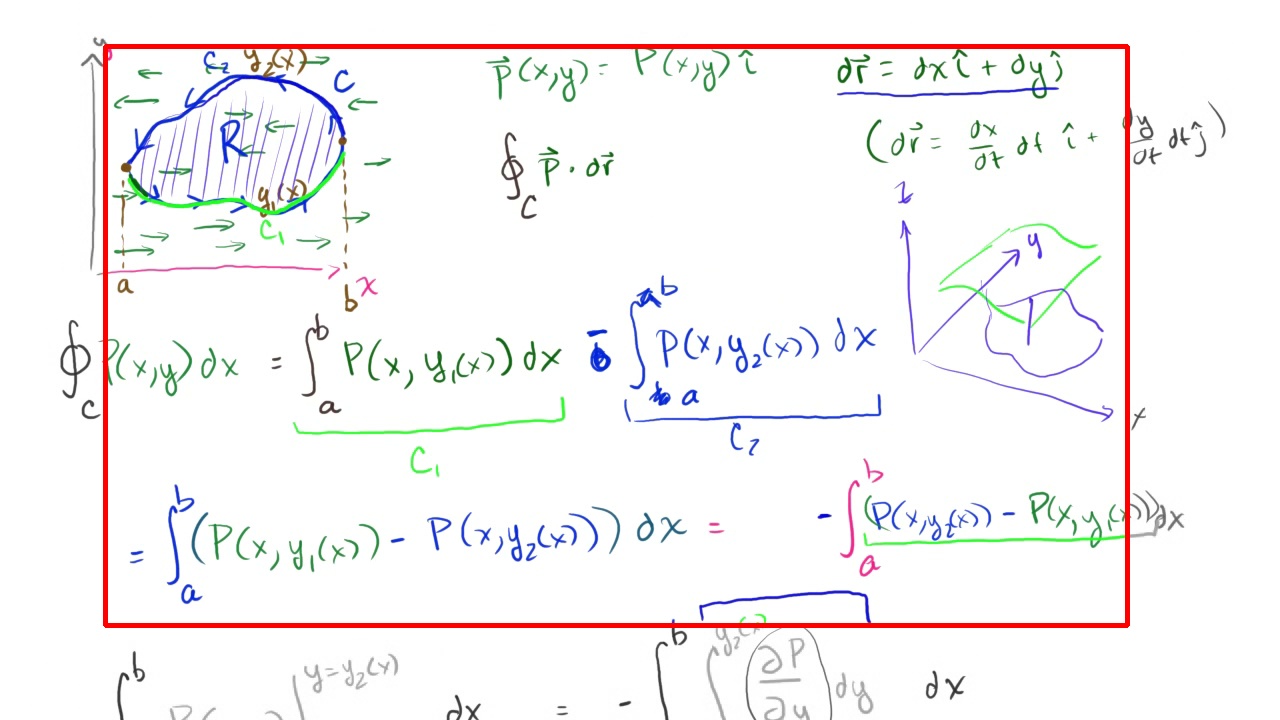 y
C₂ y₂(x)
C
R
y₁(x)
C₁
a
b x
p⃗(x,y) = P(x,y) î
dr⃗ = dx î + dy ĵ
(dr⃗ = dx/dt dt î + dy/dt dt ĵ)
∮_C p⃗ · dr⃗
z
y
x
∮_C P(x,y) dx = ∫_a^b P(x, y₁(x)) dx - ∫_a^b P(x, y₂(x)) dx
C₁
C₂
= ∫_a^b (P(x, y₁(x)) - P(x, y₂(x))) dx = - ∫_a^b (P(x, y₂(x)) - P(x, y₁(x))) dx
b y = y₂(x) dx = - ∫^b ∫^y₂(x) ∂P/∂y dy dx